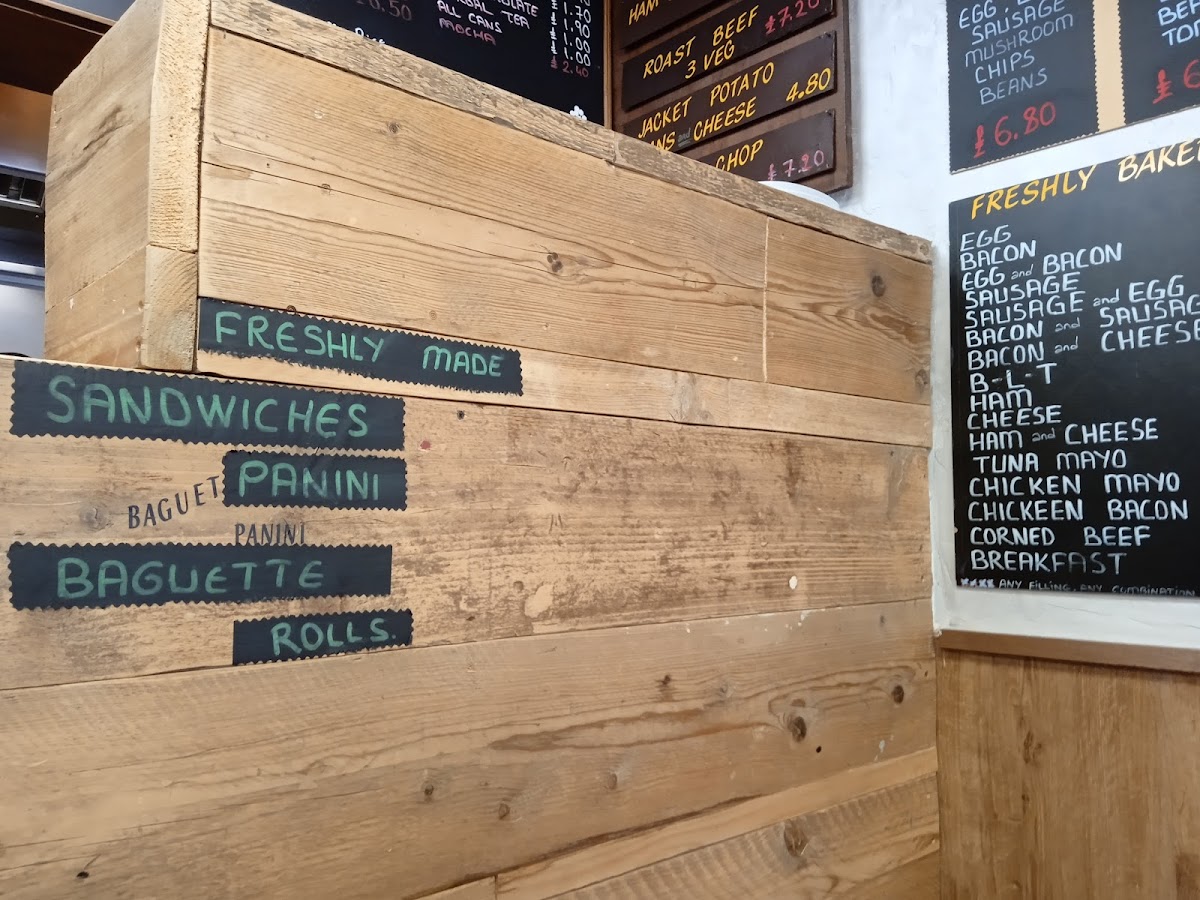 0.50
TEA
ALL CANS
MOCHA
1.70
1.00
1.90
1.00
£2.40
HAM
ROAST BEEF £7.20
3 VEG
JACKET POTATO
and CHEESE 4.80
CHOP
£7.20
EGG,
SAUSAGE
MUSHROOM
CHIPS
BEANS
£6.80
FRESHLY MADE
SANDWICHES
PANINI
BAGUET
PANINI
BAGUETTE
ROLLS.
FRESHLY BAKE
EGG
BACON
EGG and BACON
SAUSAGE
SAUSAGE and EGG
BACON and SAUSAG
BACON and CHEESE
B-L-T
HAM
CHEESE
HAM and CHEESE
TUNA MAYO
CHICKEN MAYO
CHICKEEN BACON
CORNED BEEF
BREAKFAST
**** ANY FILLING, ANY COMBINATION